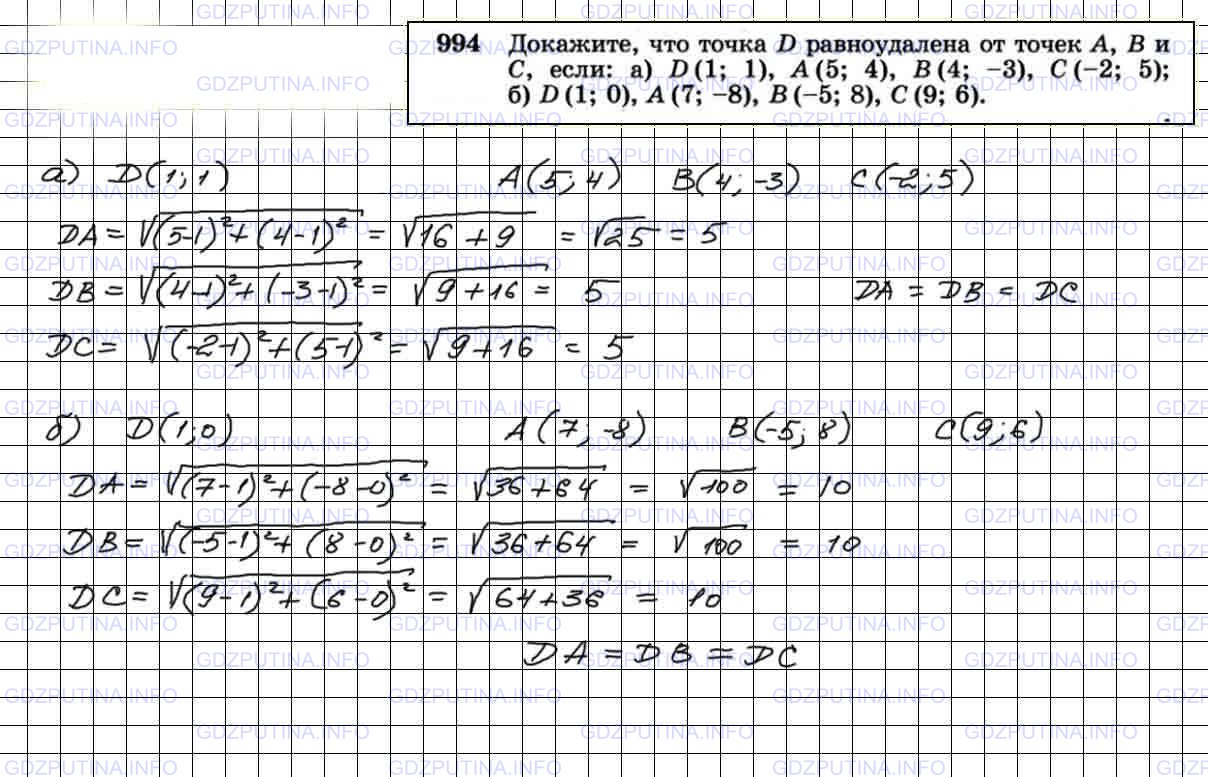 994 Докажите, что точка D равноудалена от точек A, B и
C, если: а) D (1; 1), A (5; 4), B (4; −3), C (−2; 5);
б) D (1; 0), A (7; −8), B (−5; 8), C (9; 6).
а) D(1;1) A(5;4) B(4;-3) C(-2;5)
DA = √(5-1)²+(4-1)² = √16+9 = √25 = 5
DB = √(4-1)²+(-3-1)² = √9+16 = 5 DA = DB = DC
DC = √(-2-1)²+(5-1)² = √9+16 = 5
б) D(1;0) A(7;-8) B(-5;8) C(9;6)
DA = √(7-1)²+(-8-0)² = √36+64 = √100 = 10
DB = √(-5-1)²+(8-0)² = √36+64 = √100 = 10
DC = √(9-1)²+(6-0)² = √64+36 = 10
DA = DB = DC
GDZPUTINA.INFO